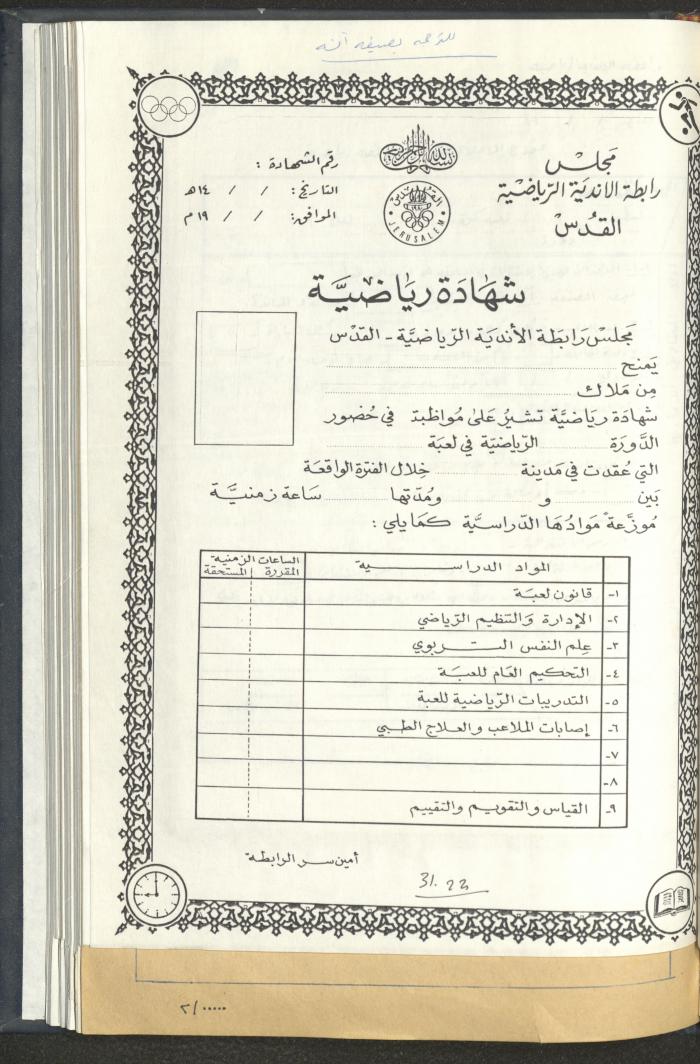 للترجمة بصيغة
مجلس
رابطة الاندية الرياضية
القدس
بسم الله الرحمن الرحيم
القدس
JERUSALEM
رقم الشهادة :
التاريخ: / / ١٤هـ
الموافق: / / ١٩م
شهادة رياضيَّة
مجلس رابطة الأندية الرّياضيَّة - القدس
يَمنح
مِن مَلاك
شهادة رياضيَّة تشيرُ عَلى مُواظبة في حُضور
الدَّورَة الرّياضيّة في لعبَة
التي عُقدت في مَدينة خِلال الفترة الواقعَة
بَين و ومُدّتها سَاعة زمنيَّة
مُوزَّعة مَوادُها الدّراسيَّة كمَا يلي :
المواد الدراسية
الساعات الزمنية
المقررة المستحقة
١- قانون لعبَة
٢- الإدارة وَالتنظيم الرّياضي
٣- عِلم النفس التربوي
٤- التحكيم العَام للعبَة
٥- التدريبات الرّياضية للعبة
٦- إصابات الملاعب والعلاج الطبي
٧-
٨-
٩- القياس والتقويم والتقييم
أمين سر الرابطة
31. 23
٢/٠٠٠٠٠